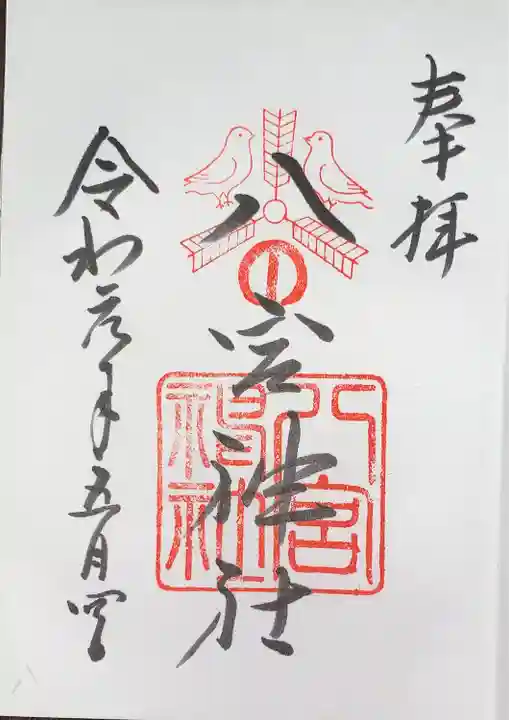 奉拝
八宮神社
令和元年五月四日
八宮神社